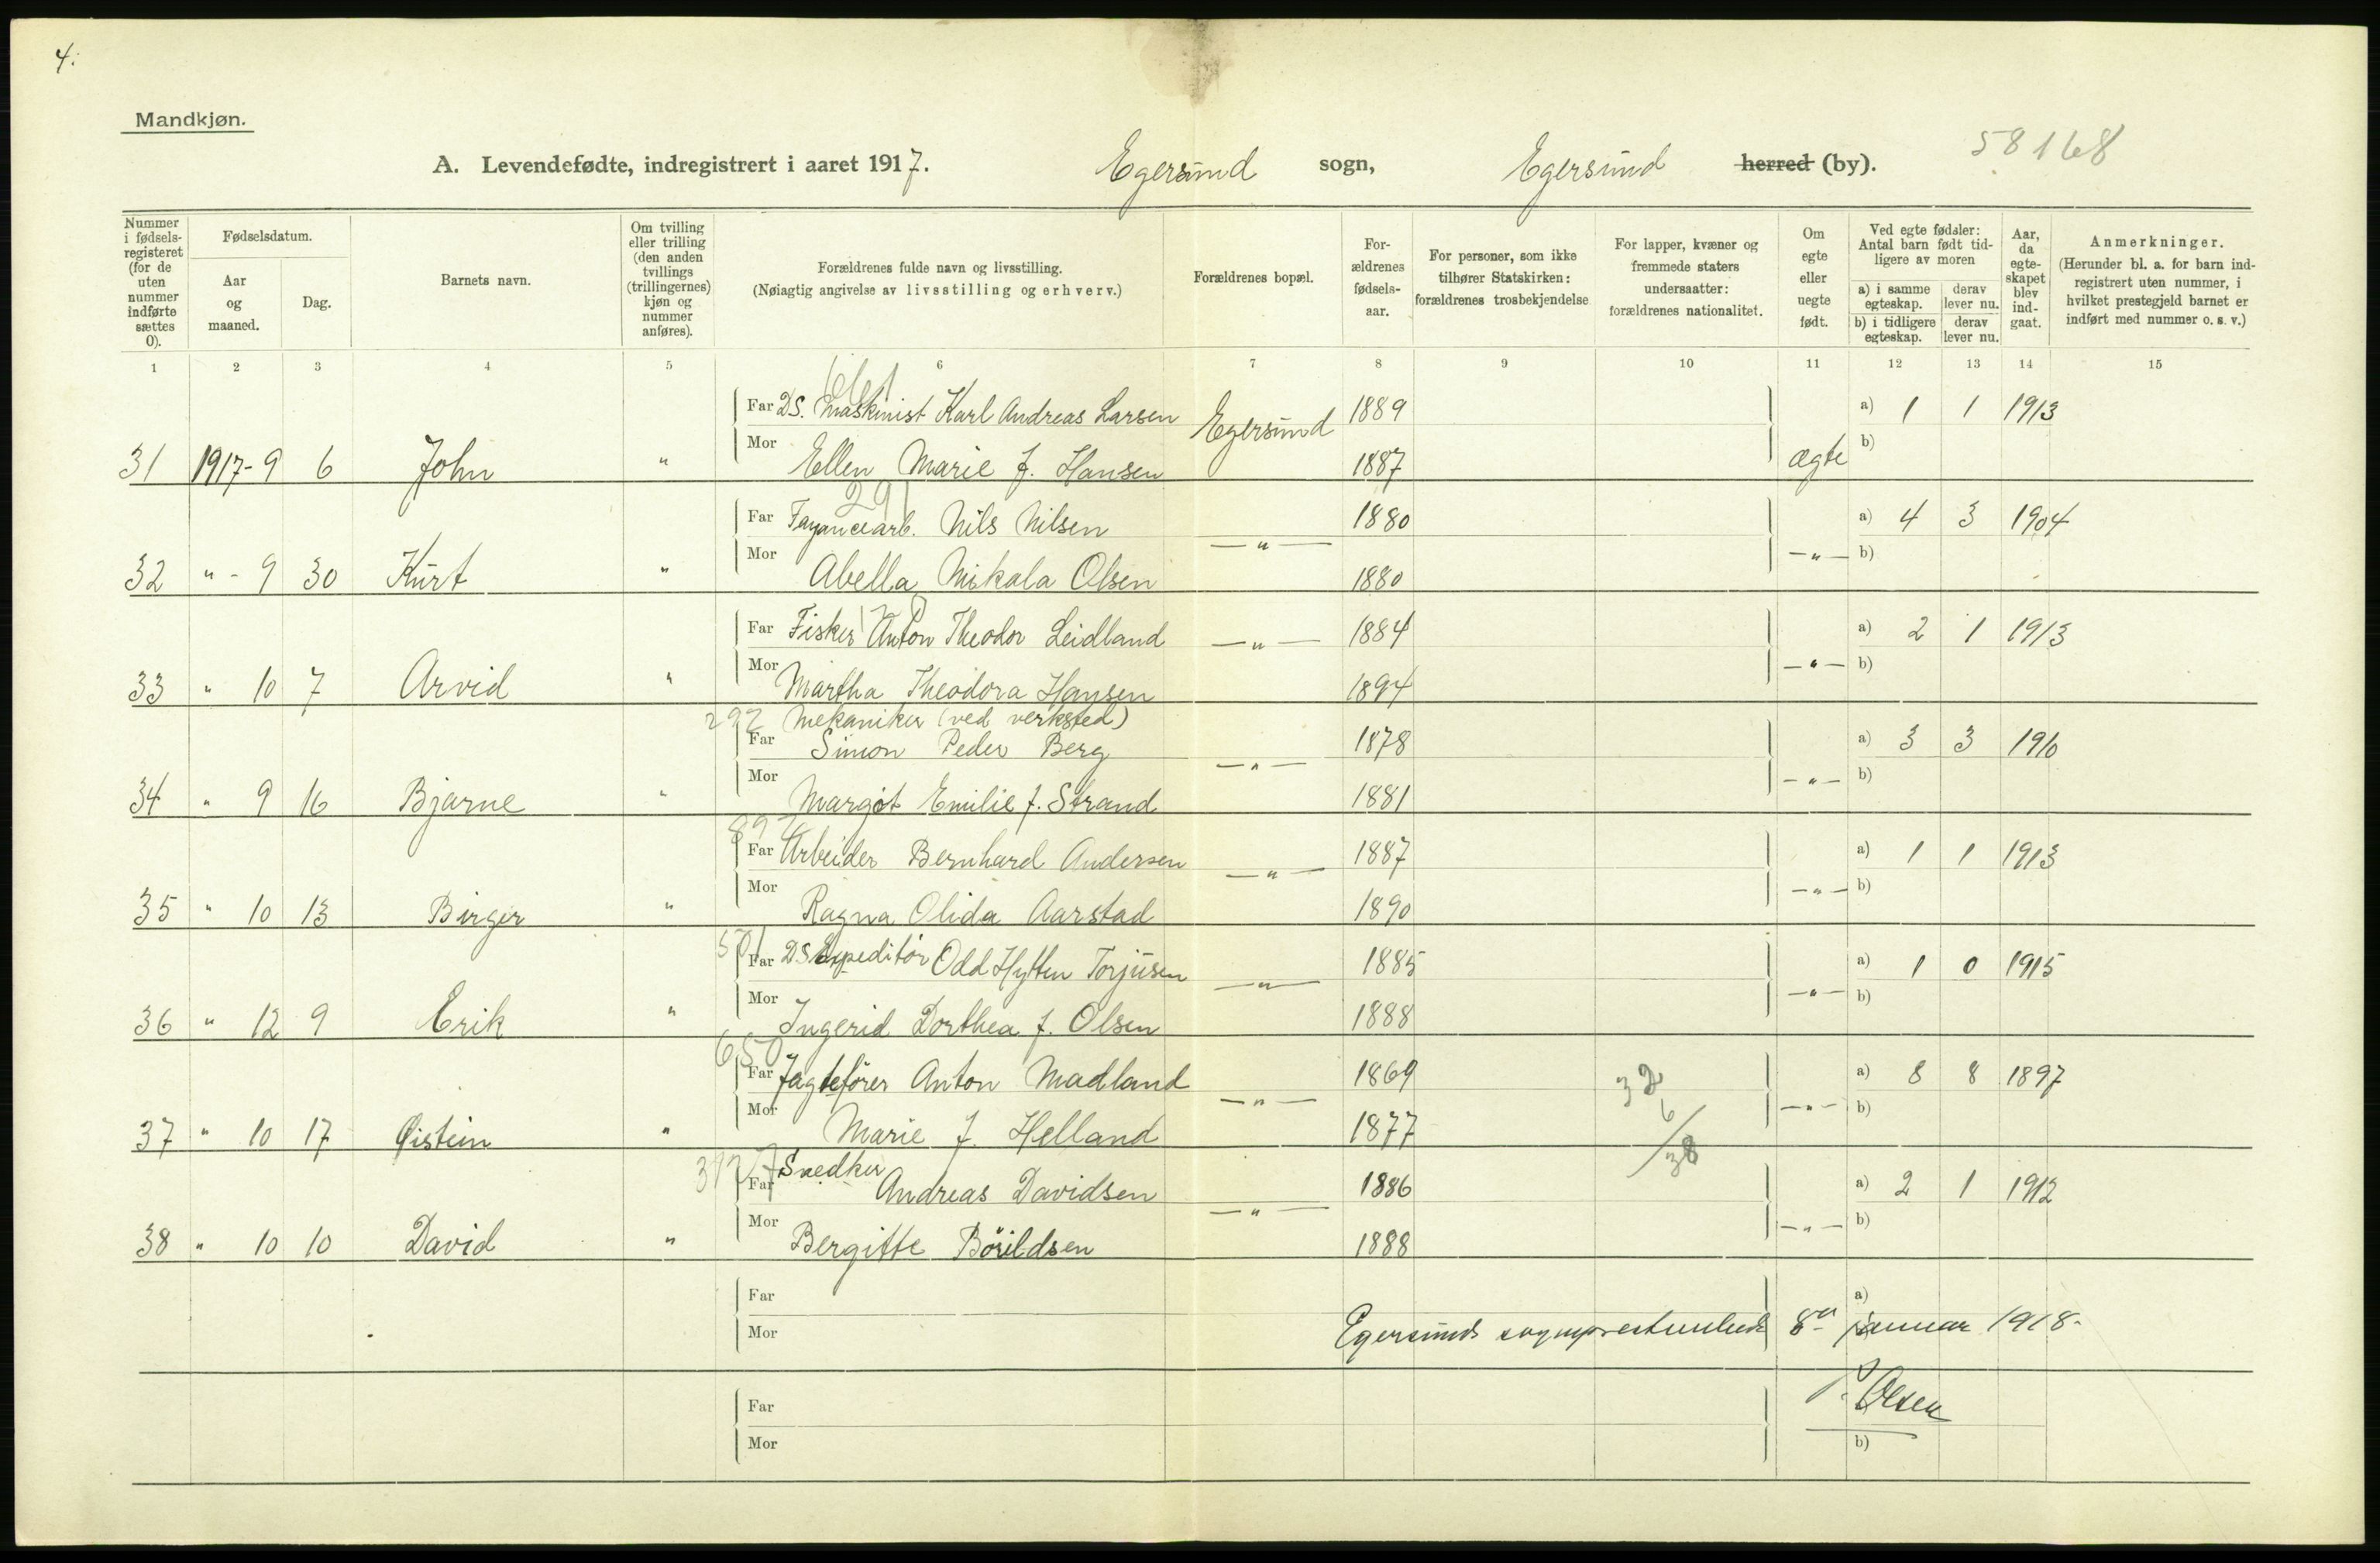 4.
Mandkjøn.
A. Levendefødte, indregistrert i aaret 1917. Egersund sogn, Egersund herred (by). 58168
Nummer i fødsels-registeret (for de uten nummer indførte sættes 0).
Fødselsdatum.
Aar og maaned.
Dag.
Barnets navn.
Om tvilling eller trilling (den anden tvillings (trillingernes) kjøn og nummer anføres).
Forældrenes fulde navn og livsstilling.
(Nøiagtig angivelse av livsstilling og erhverv.)
Forældrenes bopæl.
For-ældrenes fødsels-aar.
For personer, som ikke tilhører Statskirken: forældrenes trosbekjendelse
For lapper, kvæner og fremmede staters undersaatter: forældrenes nationalitet.
Om egte eller uegte født.
Ved egte fødsler: Antal barn født tid-ligere av moren
a) i samme egteskap.
derav lever nu.
b) i tidligere egteskap.
derav lever nu.
Aar, da egte-skapet blev ind-gaat.
Anmerkninger.
(Herunder bl. a. for barn ind-registrert uten nummer, i hvilket prestegjeld barnet er indført med nummer o. s. v.)
1 2 3 4 5 6 7 8 9 10 11 12 13 14 15
Far DS. Maskinist Karl Andreas Larsen Egersund 1889 a) 1 1 1913
31 1917-9 6 John " Mor Ellen Marie f. Hansen 1887 ægte b)
291
Far Fayancearb. Nils Nilsen —"— 1880 a) 4 3 1904
32 " - 9 30 Kurt " Mor Abella Niskala Olsen 1880 —"— b)
Far Fisker Anton Theodor Leidland —"— 1884 a) 2 1 1913
33 " 10 7 Arvid " Mor Martha Theodora Hansen 1894 —"— b)
292 Mekaniker (ved verksted)
Far Simon Peder Berg —"— 1878 a) 3 3 1910
34 " 9 16 Bjarne " Mor Margot Emilie f. Strand 1881 —"— b)
Far Arbeider Bernhard Andersen —"— 1887 a) 1 1 1913
35 " 10 13 Birger " Mor Ragna Olida Aarstad 1890 —"— b)
Far DS Expeditør Odd Hytten Torjusen —"— 1885 a) 1 0 1915
36 " 12 9 Erik " Mor Ingerid Dorthea f. Olsen 1888 —"— b)
650
Far Jagtefører Anton Madland —"— 1869 32 a) 8 8 1897
37 " 10 17 Øistein " Mor Marie f. Helland 1877 6/38 —"— b)
Snedker
Far Andreas Davidsen —"— 1886 a) 2 1 1912
38 " 10 10 David " Mor Bergitte Börildsen 1888 —"— b)
Far a)
Mor Egersunds sogneprestembede 8de januar 1918.
Far Olsen
Mor b)